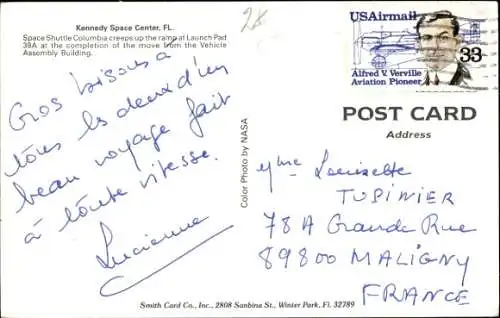 Kennedy Space Center, FL.
Space Shuttle Columbia creeps up the ramp at Launch Pad
39A at the completion of the move from the Vehicle
Assembly Building.
USAirmail
33
Alfred V. Verville
Aviation Pioneer
POST CARD
Address
Gros bisous à
tous les deux d'un
beau voyage fait
à toute vitesse.
Lucienne
Color Photo by NASA
Mme Louisette
TUPINIER
78 A Grande Rue
89800 MALIGNY
FRANCE
Smith Card Co., Inc., 2808 Sanbina St., Winter Park, Fl. 32789